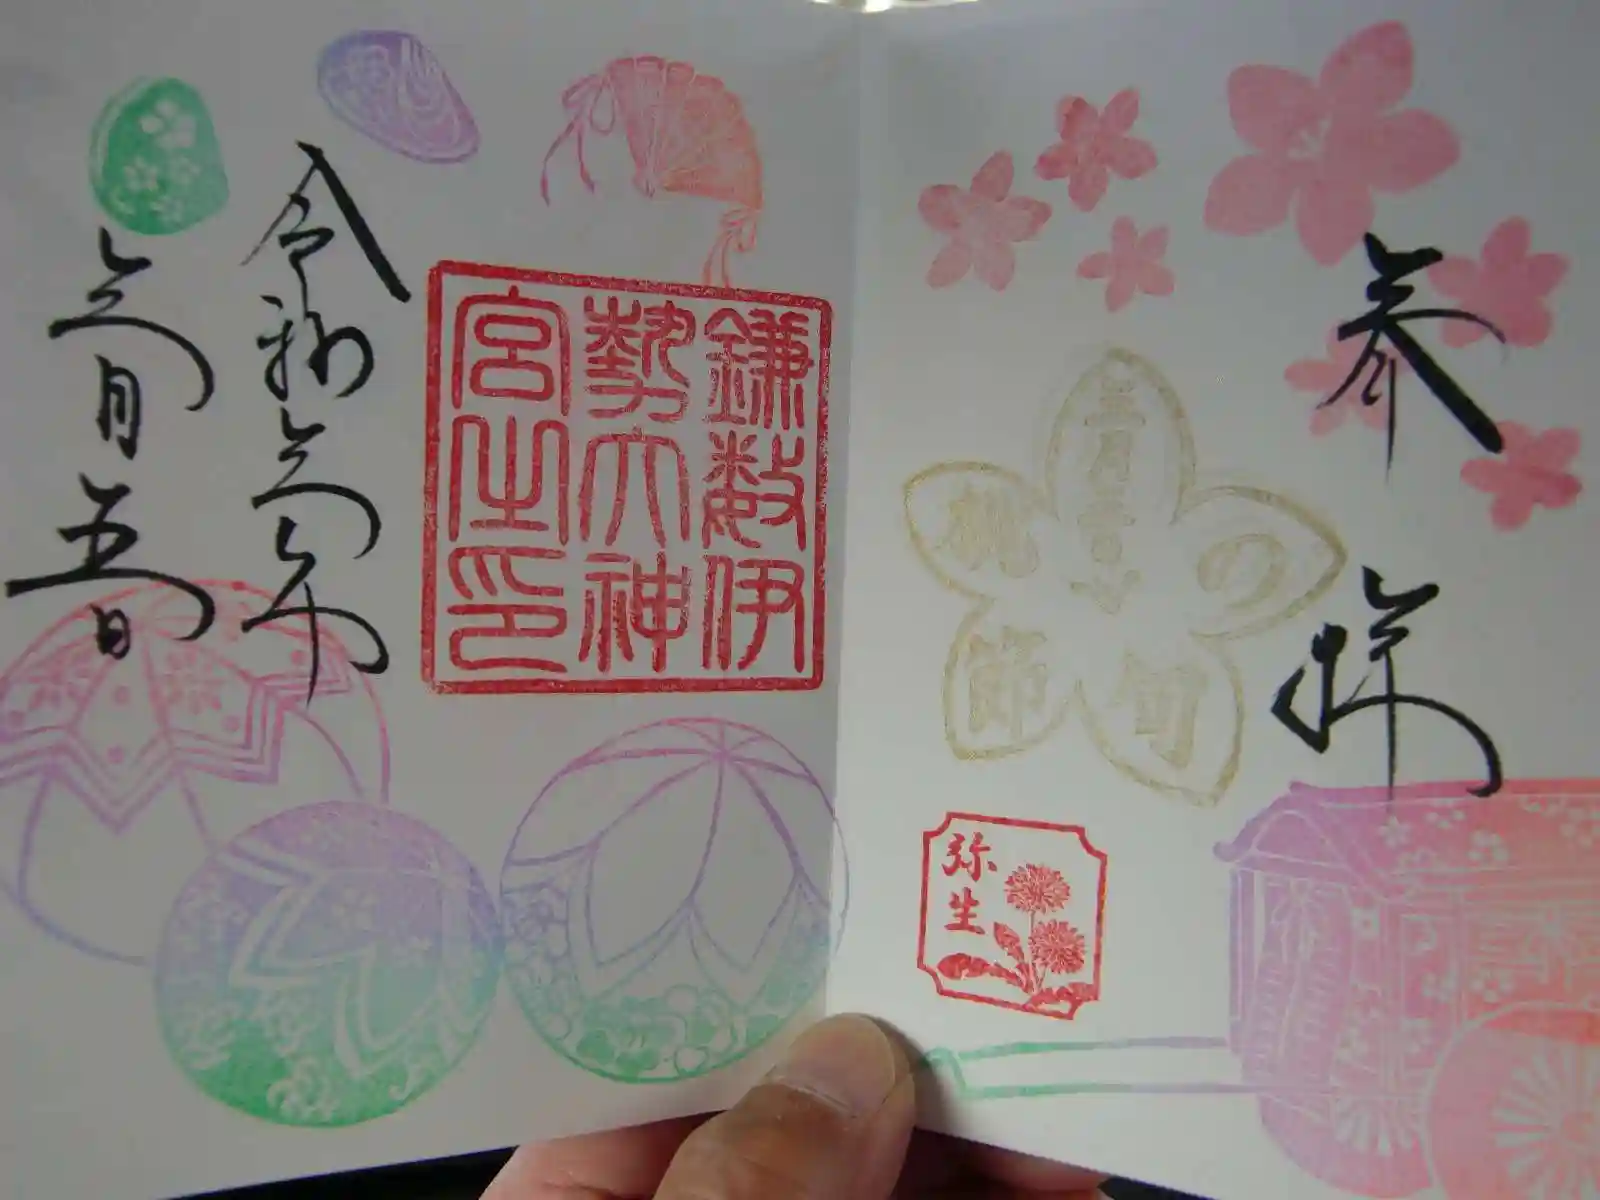 参拝
三月三日
桃の節句
弥生
鎌数伊
勢大神
宮之印
令和三年
三月五日